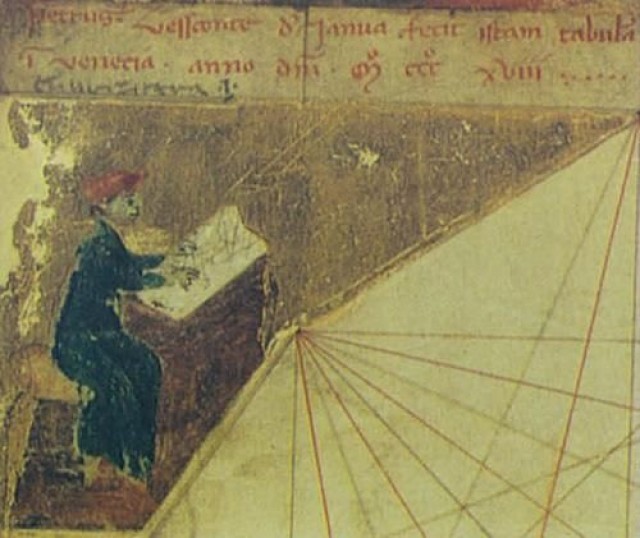 Petrus vessconte d' Janua fecit istam tabulã
ĩ venecia . anno dñi . Mº cccº xviii ......